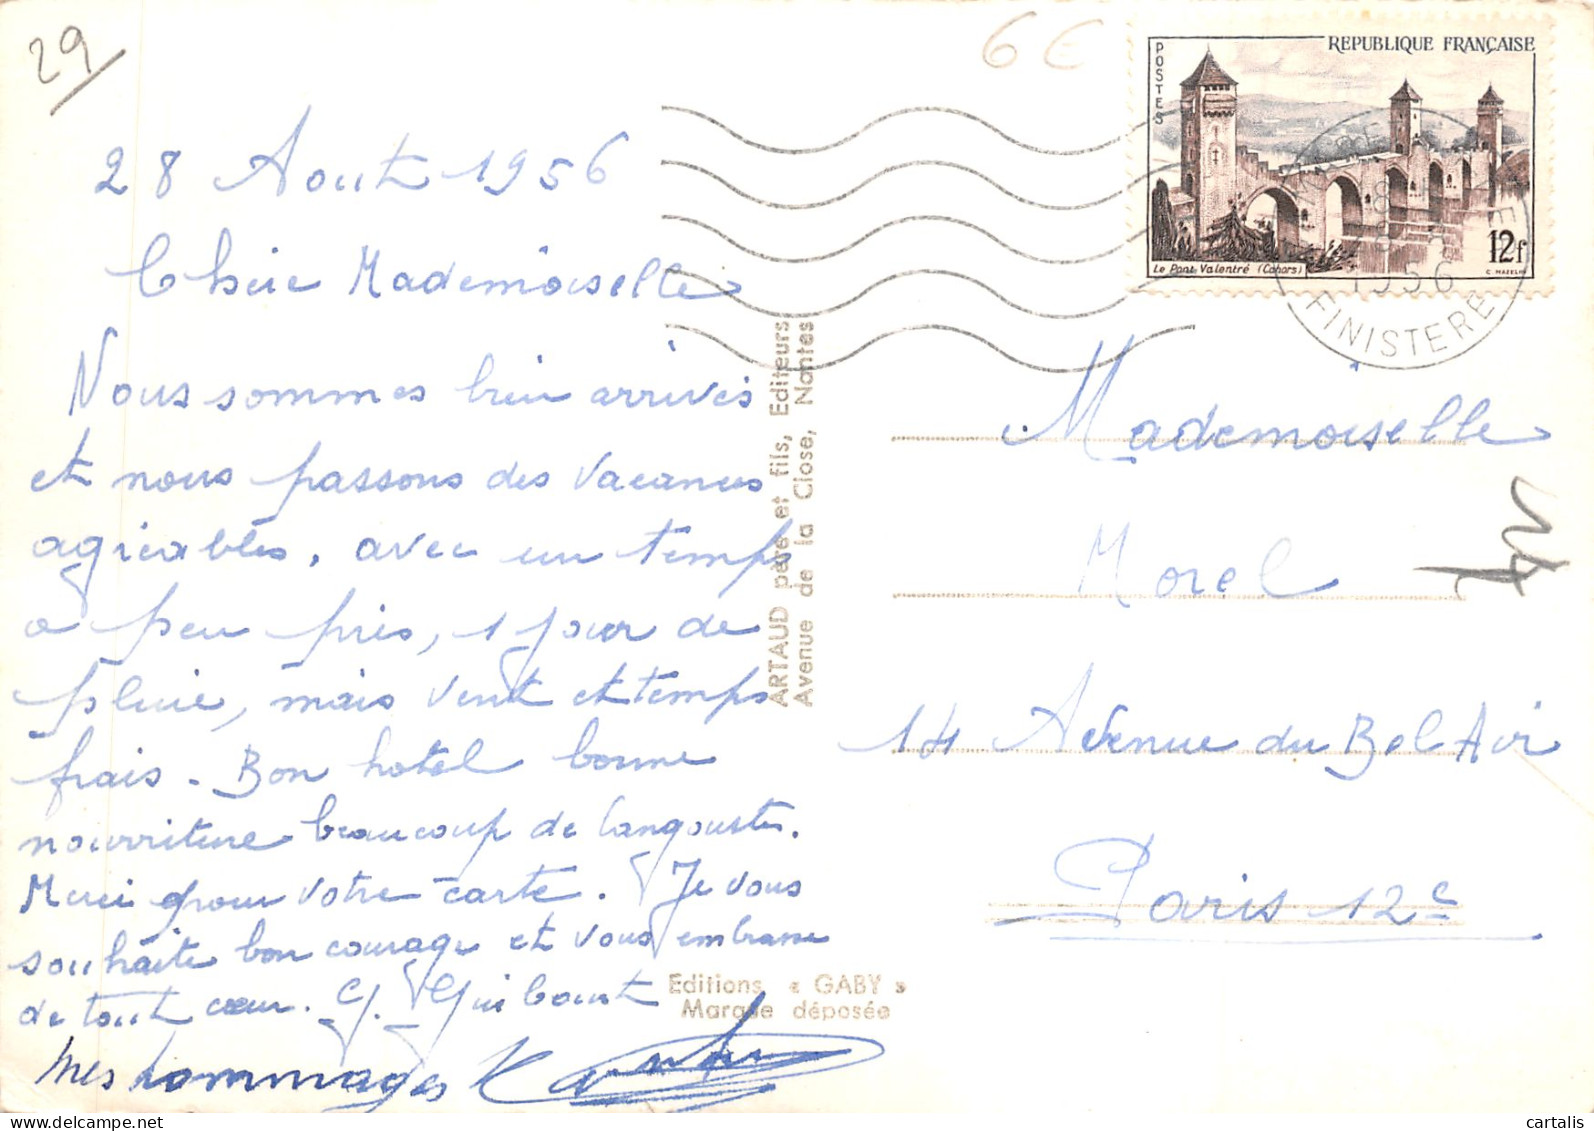 29
6€
28 Aout 1956
Chère Mademoiselle
Nous sommes bien arrivés
et nous passons des vacances
agréables, avec un temps
a peu près, 1 jour de
pluie, mais vent et temps
frais. Bon hotel bonne
nourriture beaucoup de langoustes.
Merci pour votre carte. Je vous
souhaite bon courage et vous embrasse
de tout cœur. G. Guiboust
Mes hommages
ARTAUD père et fils, Editeurs
Avenue de la Close, Nantes
Editions « GABY »
Marque déposée
POSTES
REPUBLIQUE FRANÇAISE
Le Pont Valentré (Cahors)
12f
C. MAZELIN
1956
FINISTERE
Mademoiselle
Morel
14 Avenue du Bel Air
Paris 12e
cartalis
delcampe.net